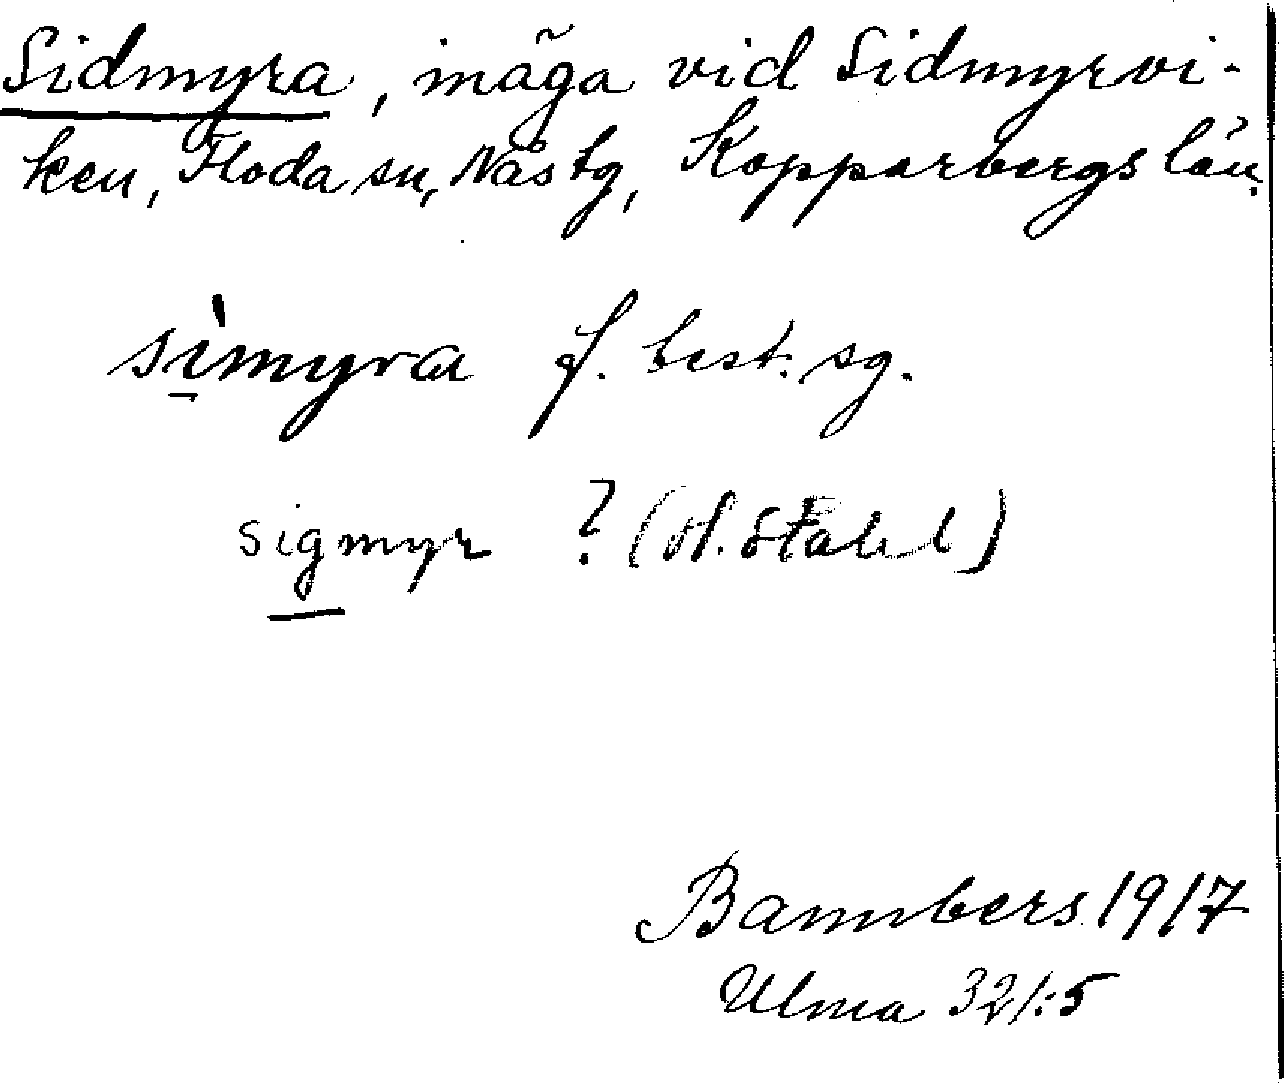 Sidmyra, inäga vid Sidmyrvi-
ken, Floda sn, Näs tg, Kopparbergs län.
sịmyra f. best. sg.
sigmyr ? (H. Ståhl)
Bannbers 1917
Ulma 321:5